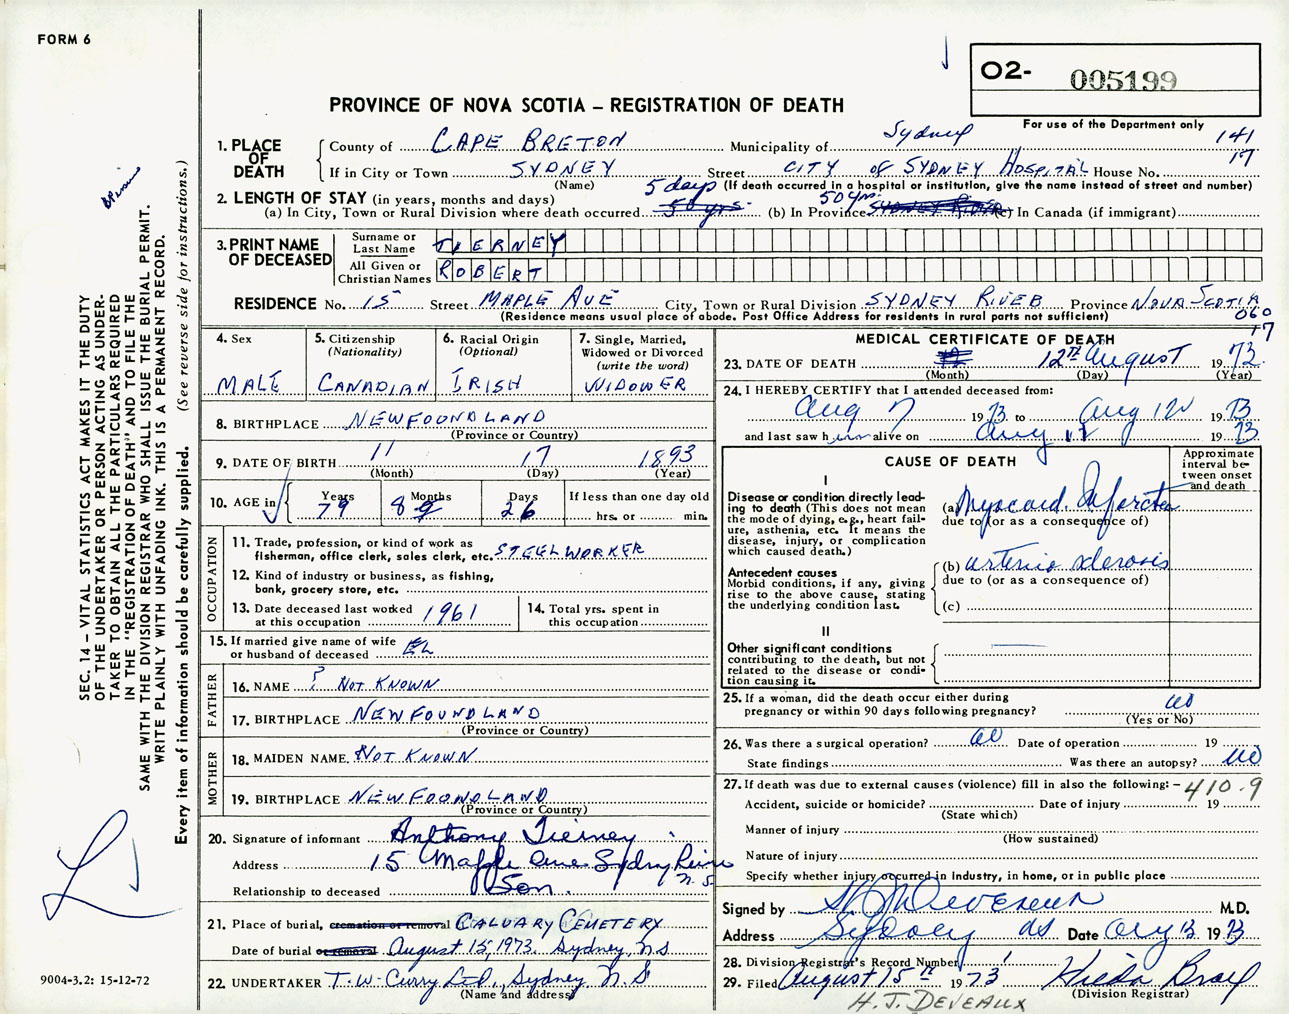 FORM 6
O2- 005199
PROVINCE OF NOVA SCOTIA – REGISTRATION OF DEATH
For use of the Department only
141
17
1. PLACE OF DEATH
County of CAPE BRETON Municipality of Sydney
If in City or Town SYDNEY Street CITY OF SYDNEY HOSPITAL House No.
(Name) (If death occurred in a hospital or institution, give the name instead of street and number)
2. LENGTH OF STAY (in years, months and days)
(a) In City, Town or Rural Division where death occurred 5 days 50 yrs. (b) In Province 50 yrs. SYDNEY RIVER (c) In Canada (if immigrant)
3. PRINT NAME OF DECEASED
Surname or Last Name TIERNEY
All Given or Christian Names ROBERT
RESIDENCE No. 15 Street MAPLE AVE City, Town or Rural Division SYDNEY RIVER Province NOVA SCOTIA
(Residence means usual place of abode. Post Office Address for residents in rural parts not sufficient)
060
17
4. Sex
MALE
5. Citizenship
(Nationality)
CANADIAN
6. Racial Origin
(Optional)
IRISH
7. Single, Married, Widowed or Divorced
(write the word)
WIDOWER
8. BIRTHPLACE NEWFOUNDLAND
(Province or Country)
9. DATE OF BIRTH 11 17 1893
(Month) (Day) (Year)
10. AGE in Years Months Days If less than one day old
79 8 9 26 hrs. or min.
OCCUPATION
11. Trade, profession, or kind of work as
fisherman, office clerk, sales clerk, etc. STEELWORKER
12. Kind of industry or business, as fishing,
bank, grocery store, etc.
13. Date deceased last worked
at this occupation 1961
14. Total yrs. spent in
this occupation
15. If married give name of wife
or husband of deceased
FATHER
16. NAME ? NOT KNOWN
17. BIRTHPLACE NEWFOUNDLAND
(Province or Country)
MOTHER
18. MAIDEN NAME NOT KNOWN
19. BIRTHPLACE NEWFOUNDLAND
(Province or Country)
20. Signature of informant Anthony Tierney
Address 15 Maple Ave Sydney River
N.S.
Relationship to deceased Son.
21. Place of burial, cremation or removal CALVARY CEMETERY
Date of burial or removal August 15, 1973. Sydney NS
22. UNDERTAKER T.W. Curry Ltd., Sydney N.S
(Name and address)
MEDICAL CERTIFICATE OF DEATH
23. DATE OF DEATH 12TH August 1973.
(Month) (Day) (Year)
24. I HEREBY CERTIFY that I attended deceased from:
Aug 7 1973 to Aug 12 1973
and last saw him alive on Aug 12 1973
CAUSE OF DEATH
Approximate interval between onset and death
I
Disease or condition directly leading to death (This does not mean
the mode of dying, e.g., heart failure, asthenia, etc. It means the
disease, injury, or complication
which caused death.)
(a) Myocard. Infarction
due to (or as a consequence of)
Antecedent causes
Morbid conditions, if any, giving
rise to the above cause, stating
the underlying condition last.
(b) arterio sclerosis
due to (or as a consequence of)
(c)
II
Other significant conditions
contributing to the death, but not
related to the disease or condition causing it.
25. If a woman, did the death occur either during
pregnancy or within 90 days following pregnancy? no
(Yes or No)
26. Was there a surgical operation? no Date of operation 19
State findings Was there an autopsy? no
27. If death was due to external causes (violence) fill in also the following: – 410.9
Accident, suicide or homicide? Date of injury 19
(State which)
Manner of injury
(How sustained)
Nature of injury
Specify whether injury occurred in industry, in home, or in public place
Signed by H J Deveaux M.D.
Address Sydney NS Date Aug 13 1973
28. Division Registrar's Record Number
29. Filed August 15th 1973 Hilda Bray
(Division Registrar)
H. J. DEVEAUX
SEC. 14 – VITAL STATISTICS ACT MAKES IT THE DUTY
OF THE UNDERTAKER OR PERSON ACTING AS UNDER-
TAKER TO OBTAIN ALL THE PARTICULARS REQUIRED
IN THE "REGISTRATION OF DEATH" AND TO FILE THE
SAME WITH THE DIVISION REGISTRAR WHO SHALL ISSUE THE BURIAL PERMIT.
WRITE PLAINLY WITH UNFADING INK. THIS IS A PERMANENT RECORD.
Every item of information should be carefully supplied. (See reverse side for instructions.)
9004-3.2: 15-12-72